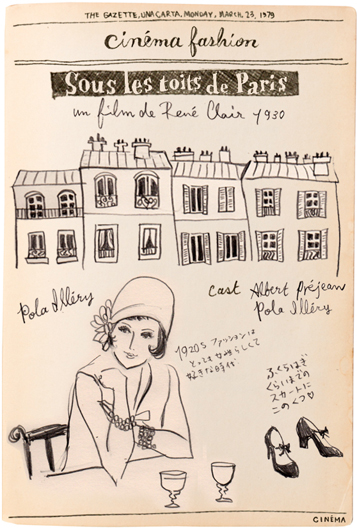 THE GAZETTE, UNA CARTA, MONDAY, MARCH, 23, 1979
cinéma fashion
Sous les toits de Paris
un film de René Clair 1930
Pola Illéry
cast Albert Préjean
Pola Illéry
1920s ファッションは
とっても女らしくて
好きな時代
ふくらはぎ
くらいまでの
スカートに
このくつ
CINÉMA